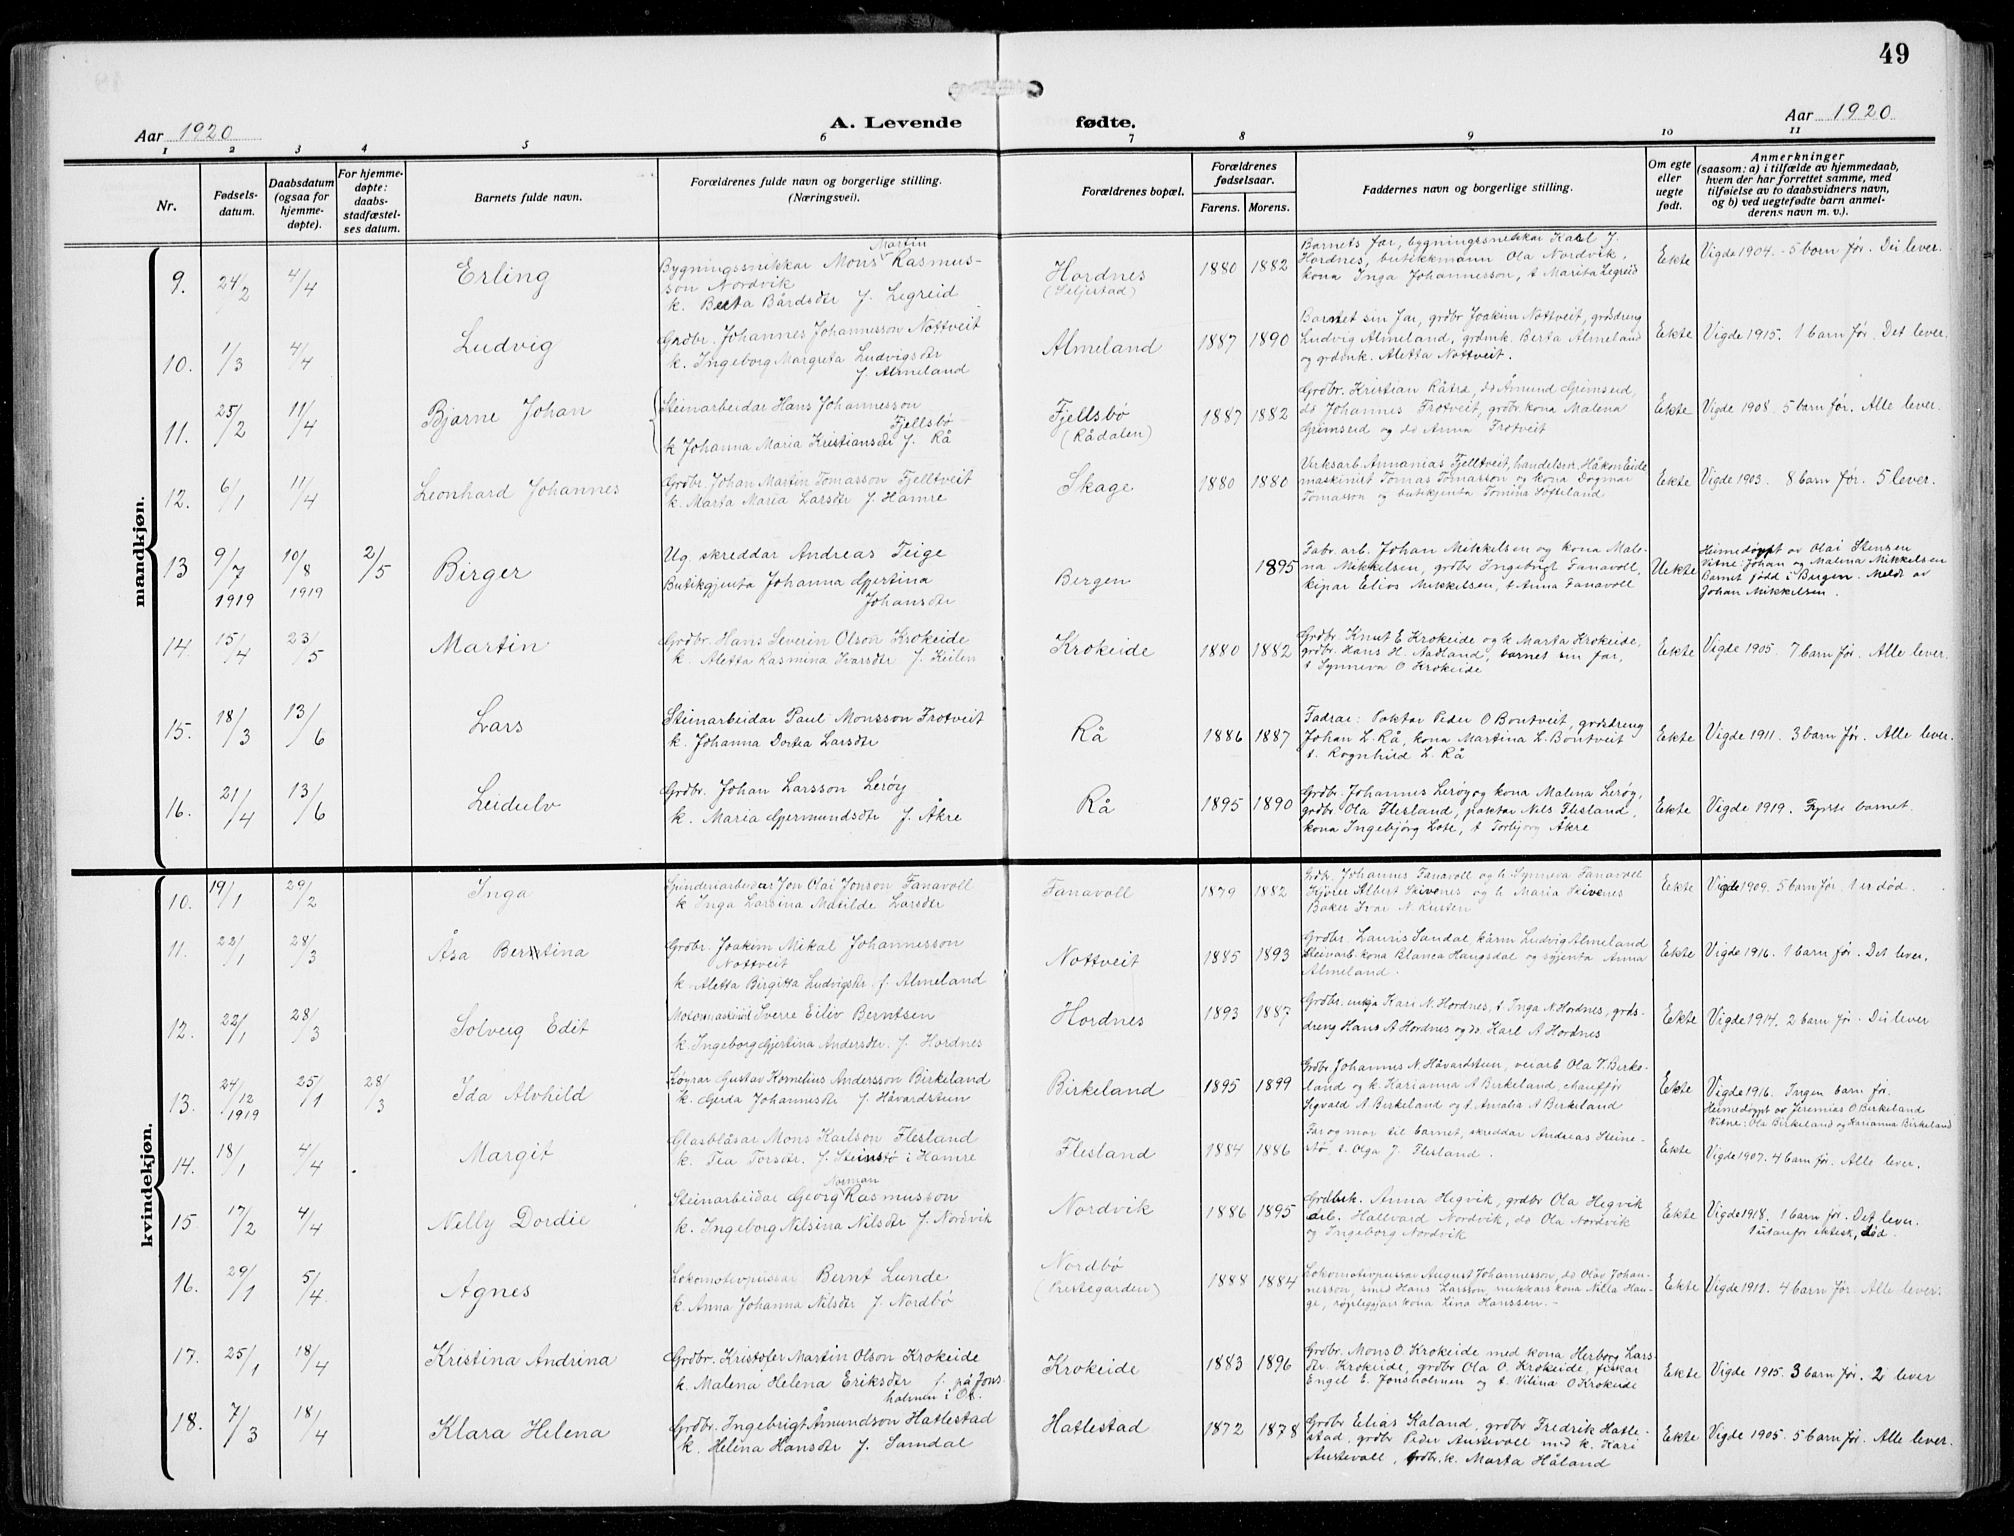 49
Aar 1920
A. Levende fødte.
Aar 1920
1 2 3 4 5 6 7 8 9 10 11
Nr.
Fødsels-datum.
Daabsdatum (ogsaa for hjemme-døpte).
For hjemme-døpte: daabs-stadfæstel-ses datum.
Barnets fulde navn.
Forældrenes fulde navn og borgerlige stilling. (Næringsvei).
Forældrenes bopæl.
Forældrenes fødselsaar.
Farens. Morens.
Faddernes navn og borgerlige stilling.
Om egte eller uegte født.
Anmerkninger
(saasom: a) i tilfælde av hjemmedaab,
hvem der har forrettet samme, med
tilføielse av to daabsvidners navn,
og b) ved uegtefødte barn anmel-
derens navn m. v.).
mandkjøn.
9. 24/2 4/4 Erling
Bygningssnikkar Mons Martin Rasmus-
son Nordvik
k. Berta Bårdsdtr f. Legreid
Hordnes
(Seljestad)
1880 1882
Barnets far, bygningssnikkar Karl J.
Hordnes, butikkmann Ola Nordvik,
kona Inga Johannesson, t Marita Legreid
Ekte
Vigde 1904. 5 barn før. Dei lever.
10. 1/3 4/4 Ludvig
Grdbr. Johannes Johannesson Nottveit
k. Ingeborg Margreta Ludvigsdtr
f. Almeland
Almeland
1887 1890
Barnet sin far, grdbr Joakim Nottveit, grdsdreng
Ludvig Almeland, grdmk. Berta Almeland
og grdmk. Aletta Nottveit.
Ekte
Vigde 1915. 1 barn før. Det lever.
11. 25/2 11/4 Bjarne Johan
Steinarbeidar Hans Johannesson
Fjellsbø
k Johanna Maria Kristiansdtr f. Rå
Fjellsbø
(Rådalen)
1887 1882
Grdbr. Kristian Råtræ, do Åmund Grimseid,
do Johannes Trotveit, grdbr.kona Malena
Grimseid og do Anna Trotveit
Ekte
Vigde 1908. 5 barn før. Alle lever.
12. 6/1 11/4 Leonhard Johannes
Grdbr. Johan Martin Tomasson Fjelltveit
k. Marta Maria Larsdtr f. Hamre
Skage
1880 1880
Verksarb. Annanias Fjelltveit, handelsm. Håkon Eide
maskinist Tomas Tomasson og kona Dagmar
Tomasson og butikjenta Tomina Søfteland
Ekte
Vigde 1903. 8 barn før. 5 lever.
13 9/7 1919 10/8 1919 2/5 Birger
Ug. skreddar Andreas Teige
Butikgjenta Johanna Gjertina
Johansdtr
Bergen
1895
Fabr. arb. Johan Mikkelsen og kona Male-
na Mikkelsen, grdbr Ingebrigt Fanavoll,
kipar Elios Mikkelsen, t Anna Fanavoll
Uekte
Heimedøypt av Olai Stensen
Vitne: Johan og Malena Mikkelsen
Barnet fødd i Bergen. Meldt av
Johan Mikkelsen.
14. 15/4 23/5 Martin
Grdbr. Hans Severin Olson Krokeide
k. Aletta Rasmina Ivarsdtr f. Keilen
Krokeide
1880 1882
Grdbr. Knut E Krokeide og k Marta Krokeide,
grdbr. Hans H. Aadland, barnet sin far,
t Synneva O Krokeide
Ekte
Vigde 1905. 7 barn før. Alle lever.
15. 18/3 13/6 Lars
Steinarbeidar Paul Monsson Trotveit
k. Johanna Dortea Larsdtr
Rå
1886 1887
Fadrar: Paktar Peder O Bontveit, grdsdreng
Johan L. Rå, kona Martina L. Bontveit
t. Rognhild L. Rå
Ekte
Vigde 1911. 3 barn før. Alle lever.
16. 21/4 13/6 Leidulv
Grdbr. Johan Larsson Lerøy
k. Maria Gjermundsdtr f. Åkre
Rå
1895 1890
Grdbr. Johannes Lerøy og kona Malena Lerøy,
grdbr. Ola Flesland, paktar Nils Flesland,
kona Ingebjørg Lote, t Torbjorg Åkre
Ekte
Vigde 1919. Fyrste barnet.
kvindekjøn.
10. 19/1 29/2 Inga
Spinderiarbeidar Jon Olai Jonson Fanavoll
k Inga Larsina Matilde Larsdtr
Fanavoll
1879 1882
Grdb. Johannes Fanavoll og h Synneva Fanavoll
Kjører Albert Skivenes og h Maria Skivenes
Baker Ivar N. Kursten
Ekte
Vigde 1909. 5 barn før. 1 er død.
11. 22/1 28/3 Åsa Berntina
Grdbr. Joakim Mikal Johannesson
Nottveit
k Aletta Birgitta Ludvigsdtr. f. Almeland
Nottveit
1885 1893
Grdbr. Lauris Sandal, kårm Ludvig Almeland
Steinarb. kona Blanca Haugsdal og syjenta Anna
Almeland.
Ekte
Vigde 1916. 1 barn før. Det lever.
12. 22/1 28/3 Solveig Edit
Motormaskinist Sverre Eiliv Berntsen
k. Ingeborg Gjertina Andersdtr. f. Hordnes
Hordnes
1893 1887
Grdbr. enkja Kari N. Hordnes, t Inga N. Hordnes, grds-
dreng Hans A Hordnes og do. Karl A Hordnes
Ekte
Vigde 1914. 2 barn før. Dei lever
13. 24/12 1919 25/1 28/3 Ida Alvhild
Køyrar Gustav Kornelius Andersson Birkeland
k. Gerda Johannesdtr f. Håvardstun
Birkeland
1895 1899
Grdbr. Johannes N. Håvardstun, veiarb Ola T. Birke-
land og k. Karianna A Birkeland, chauffør
Sigvald A Birkeland og t. Amalia A Birkeland
Ekte
Vigde 1916. Ingen barn før.
Heimedøypt av Jeremias O Birkeland
Vitne: Ola Birkeland og Karianna Birkeland
14. 18/1 4/4 Margit
Glasblåsar Mons Karlson Flesland
k. Tea Torsdtr. f. Steinstø i Hamre
Flesland
1884 1886
Far og mor til barnet, skreddar Andreas Steine-
stø, t. Olga J. Flesland.
Ekte
Vigde 1907. 4 barn før. Alle lever.
15. 17/2 4/4 Nelly Dordie
Steinarbeidar Georg Norman Rasmusson
k. Ingeborg Nilsina Nilsdtr f. Nordvik
Nordvik
1886 1895
Grdbrk. Anna Hegvik, grdbr Ola Hegvik
arb. Hallvard Nordvik, do Ola Nordvik
og Ingeborg Nordvik
Ekte
Vigde 1918. 1 barn før. Det lever.
1 utanfor ektesk, død.
16. 29/1 5/4 Agnes
Lokomotivpussar Bernt Lunde
k. Anna Johanna Nilsdtr f. Nordbø
Nordbø
(Prestegarden)
1888 1884
Lokomotivpussar August Johannesson, do Olav Johan-
nesson, smed Hans Larsson, snikkars kona Nilla Hau-
ge, røyrleggjar kona Lina Hanssen.
Ekte
Vigde 1911. 4 barn før. Alle lever.
17. 25/1 18/4 Kristina Andrina
Grdbr. Kristofer Martin Olson Krokeide
k. Malena Helena Eriksdtr f. på Jons-
holmen i Os.
Krokeide
1883 1896
Grdbr. Mons O. Krokeide med kona Herborg Lars-
dtr. Krokeide, grdbr Ola O. Krokeide, fiskar
Engel E. Jonsholmen og t. Vilina O Krokeide
Ekte
Vigde 1915. 3 barn før. 2 lever
18. 7/3 18/4 Klara Helena
Grdbr. Ingebrigt Åmundson Hatlestad
k. Helena Hansdtr f. Samdal
Hatlestad
1872 1878
Grdbr Elias Kaland, grdbr Fredrik Hatle-
stad, grdbr Peder Austevoll med k. Kari
Austevoll, grdbr. k. Marta Håland
Ekte
Vigde 1905. 5 barn før. Alle lever.